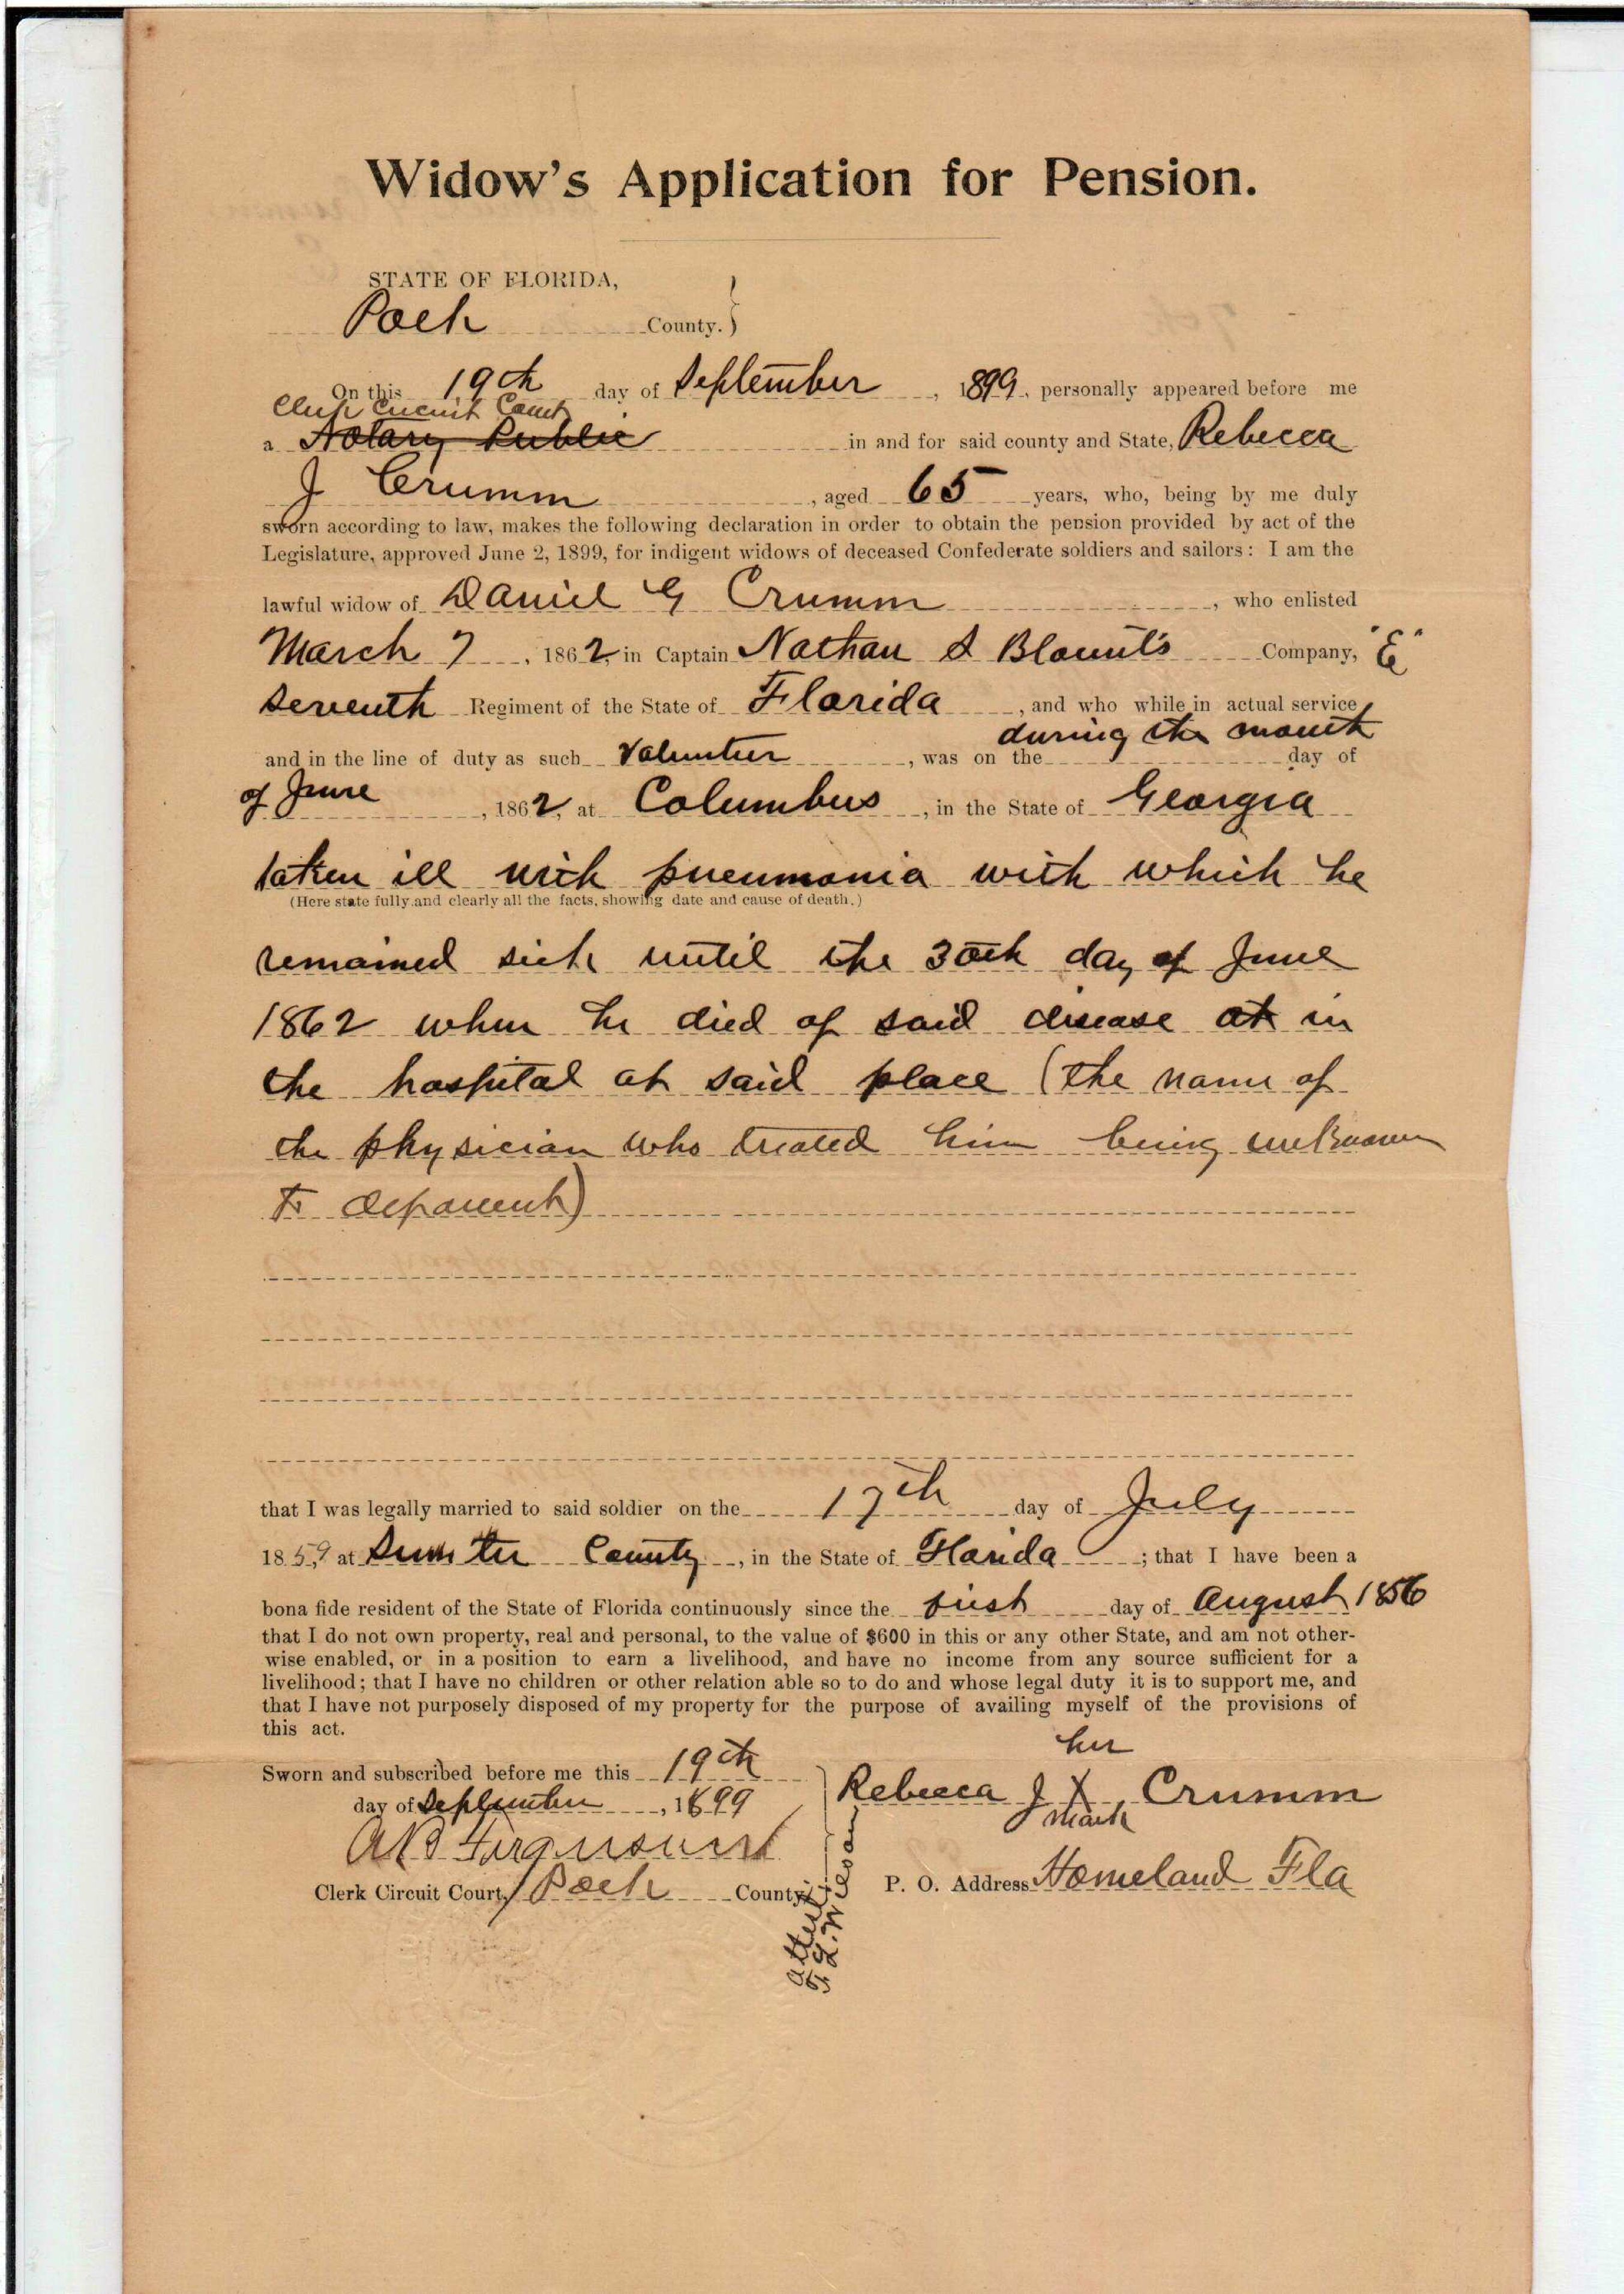 Widow's Application for Pension.
STATE OF FLORIDA,
Polk County. }
On this 19th day of September, 1899, personally appeared before me
Clerk Circuit Court
a Notary Public in and for said county and State, Rebecca
J Crumm, aged 65 years, who, being by me duly
sworn according to law, makes the following declaration in order to obtain the pension provided by act of the
Legislature, approved June 2, 1899, for indigent widows of deceased Confederate soldiers and sailors: I am the
lawful widow of Daniel G Crumm, who enlisted
March 7, 1862, in Captain Nathan S Blount's Company, "E"
Seventh Regiment of the State of Florida, and who while in actual service,
during the month
and in the line of duty as such Volunteer, was on the day of
of June, 1862, at Columbus, in the State of Georgia
taken ill with pneumonia with which he
(Here state fully and clearly all the facts, showing date and cause of death.)
remained sick until the 30th day of June
1862 when he died of said disease at in
the hospital at said place (the name of
the physician who treated him being unknown
to deponent)
that I was legally married to said soldier on the 17th day of July
1859, at Sumter County, in the State of Florida; that I have been a
bona fide resident of the State of Florida continuously since the first day of August 1856
that I do not own property, real and personal, to the value of $600 in this or any other State, and am not other-
wise enabled, or in a position to earn a livelihood, and have no income from any source sufficient for a
livelihood; that I have no children or other relation able so to do and whose legal duty it is to support me, and
that I have not purposely disposed of my property for the purpose of availing myself of the provisions of
this act.
Sworn and subscribed before me this 19th
day of September, 1899
her
Rebecca J X Crumm
mark
Ferguson
Clerk Circuit Court, Polk County.
P. O. Address Homeland Fla
Attest
Wilson